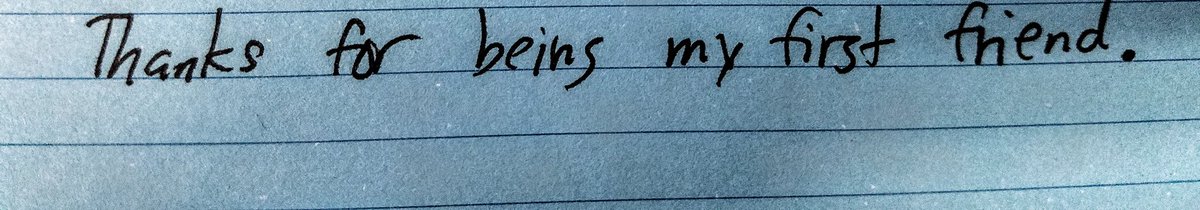 Thanks for being my first friend.